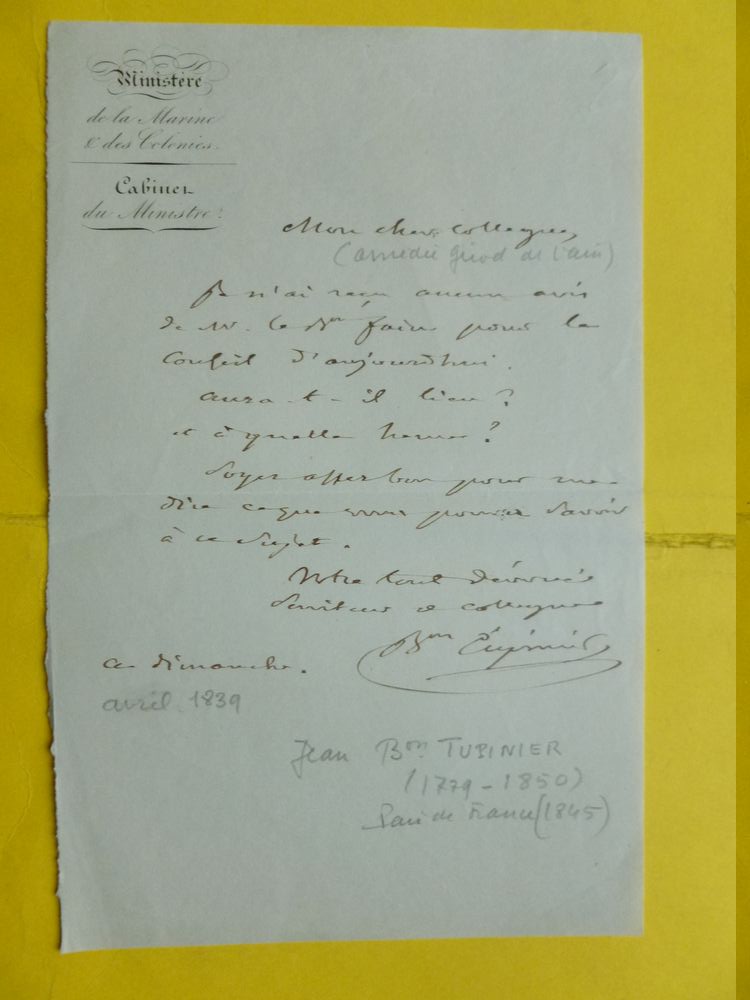 Ministère
de la Marine
& des Colonies.
Cabinet
du Ministre.
Mon cher collègue,
(amédée girod de l'ain)
Je n'ai reçu aucun avis
de M. le Bon fain pour le
Conseil d'aujourd'hui.
aura-t-il lieu ?
et à quelle heure ?
Soyez assez bon pour me
dire ce que vous pouvez savoir
à ce Sujet.
Votre tout dévoué
Serviteur et collègue
Bon Tupinier
ce dimanche.
avril 1839
Jean Bon TUPINIER
(1779-1850)
Pair de France (1845)